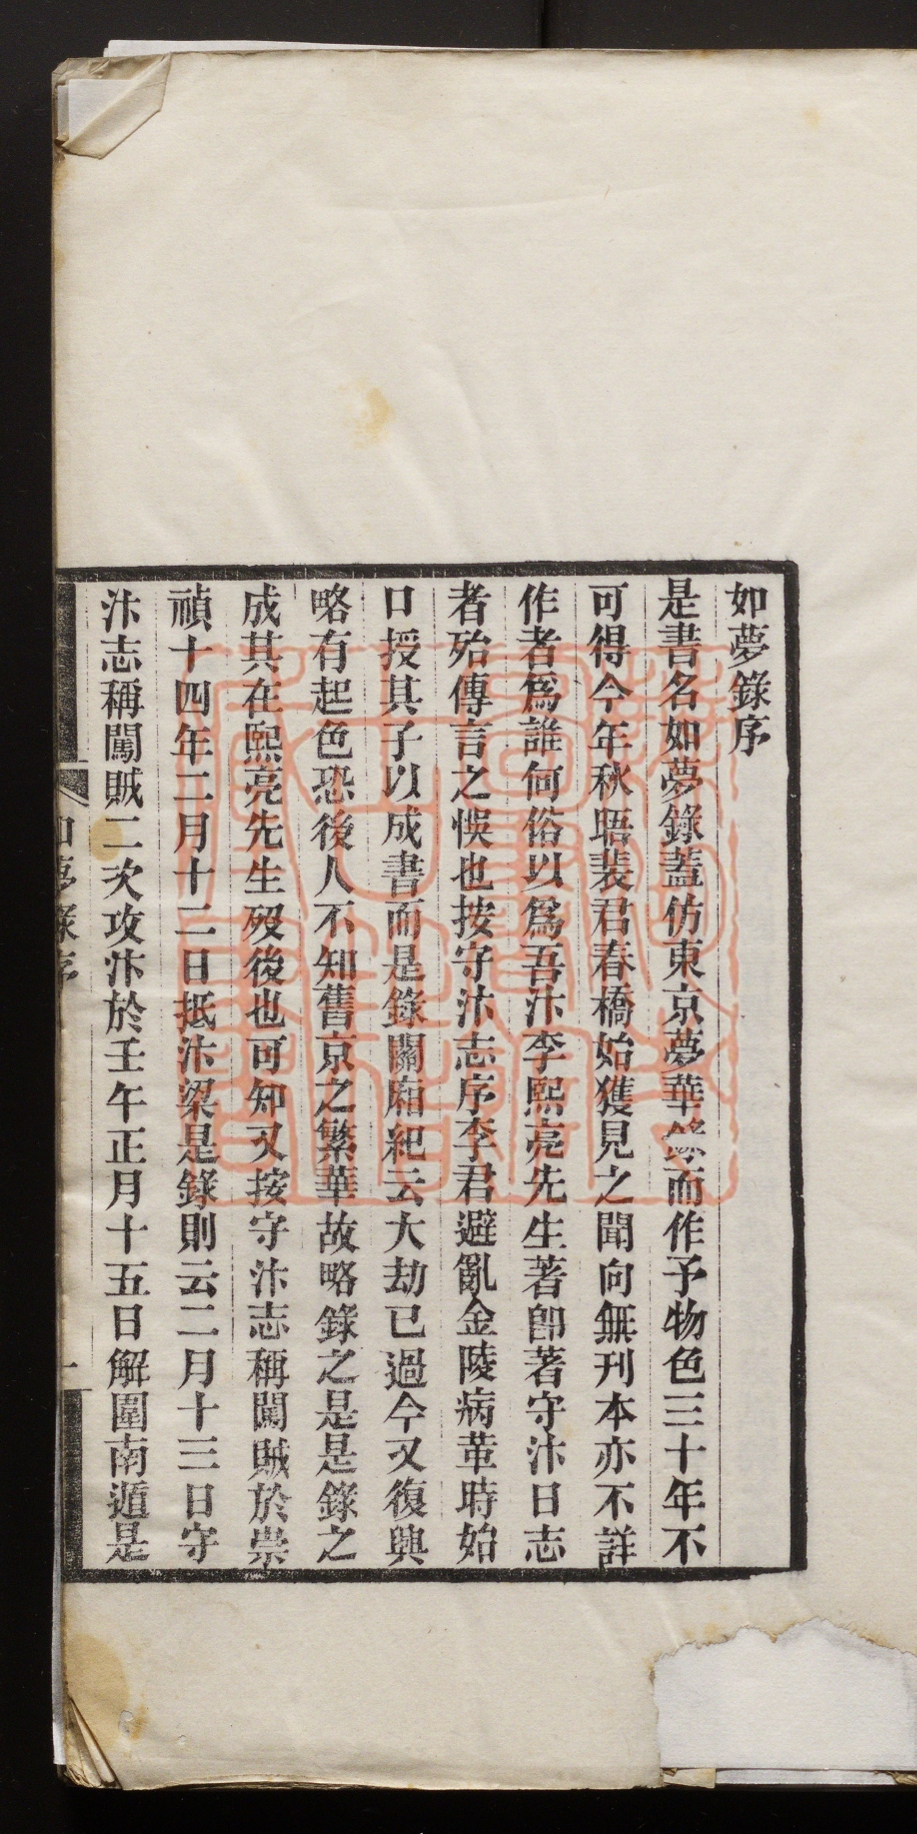 如夢錄序
是書名如夢錄蓋仿東京夢華錄而作予物色三十年不
可得今年秋晤裴君春橋始獲見之聞向無刊本亦不詳
作者爲誰何俗以爲吾汴李熙亮先生著卽著守汴日志
者殆傳言之悞也按守汴志序李君避亂金陵病革時始
口授其子以成書而是錄關廂紀云大劫已過今又復興
略有起色恐後人不知舊京之繁華故略錄之是是錄之
成其在熙亮先生歿後也可知又按守汴志稱闖賊於崇
禎十四年二月十二日抵汴梁是錄則云二月十三日守
汴志稱闖賊二次攻汴於壬午正月十五日解圍南遁是
如夢錄序
一